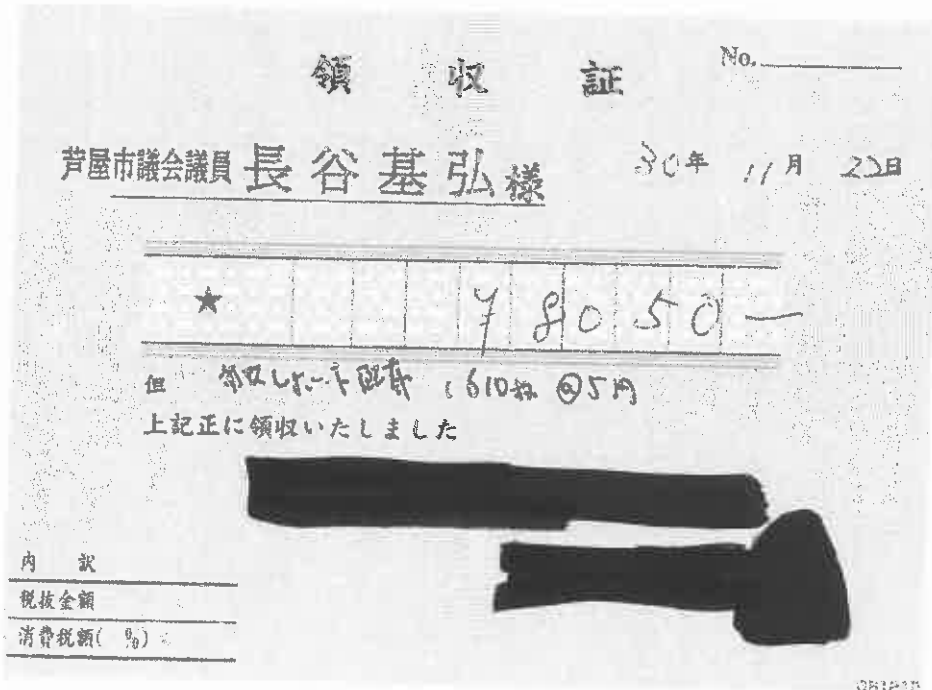 領収証
No.
芦屋市議会議員 長谷基弘様
30年 11月 22日
★ ¥8050―
但 レポート 1610枚 @5円
上記正に領収いたしました
内訳
税抜金額
消費税額( %)